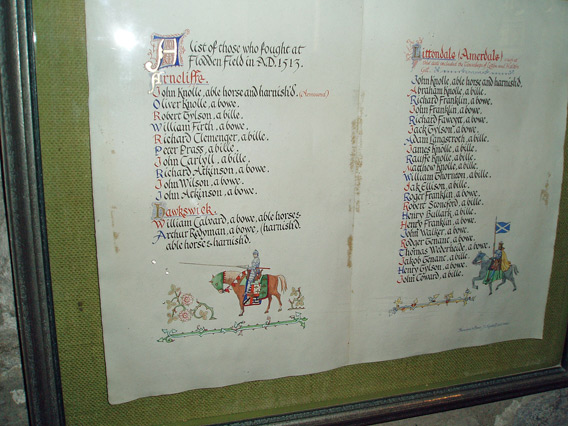 A list of those who fought at
Flodden Field in A.D. 1513.
Arncliffe.
John Knolle, able horse and harnish'd.
Oliver Knolle, a bowe.
Robert Tylson, a bille.
William Firth, a bowe.
Richard Clemenger, a bille.
Peter Prass, a bille.
John Carlyll, a bille.
Richard Atkinson, a bowe.
John Wilson, a bowe.
John Atkinson, a bowe.
Hawkswick.
William Calvard, a bowe, able horses
Arthur Redyman, a bowe, (harnish'd.
able horse & harnish'd.
Littondale (Amerdale)
John Knolle, able horse and harnish'd
Abraham Knolle, a bille.
Richard Franklin, a bowe.
John Franklin, a bille.
Richard Fawcytt, a bowe.
Jack Tylson, a bowe.
Adam Langstroth, a bille.
James Knolle, a bille.
Rauffe Knolle, a bille.
Matthew Knolle, a bille.
William Thornton, a bille.
Jak Ellison, a bille.
Roger Franklin, a bowe.
Robert Stouford, a bille.
Henry Ballark, a bille.
Henry Franklin, a bowe.
John Walker, a bille.
Rodger Tenant, a bowe.
Thomas Wederheide, a bowe.
Jakob Tenant, a bille.
Henry Tylson, a bowe.
John Coward, a bille.